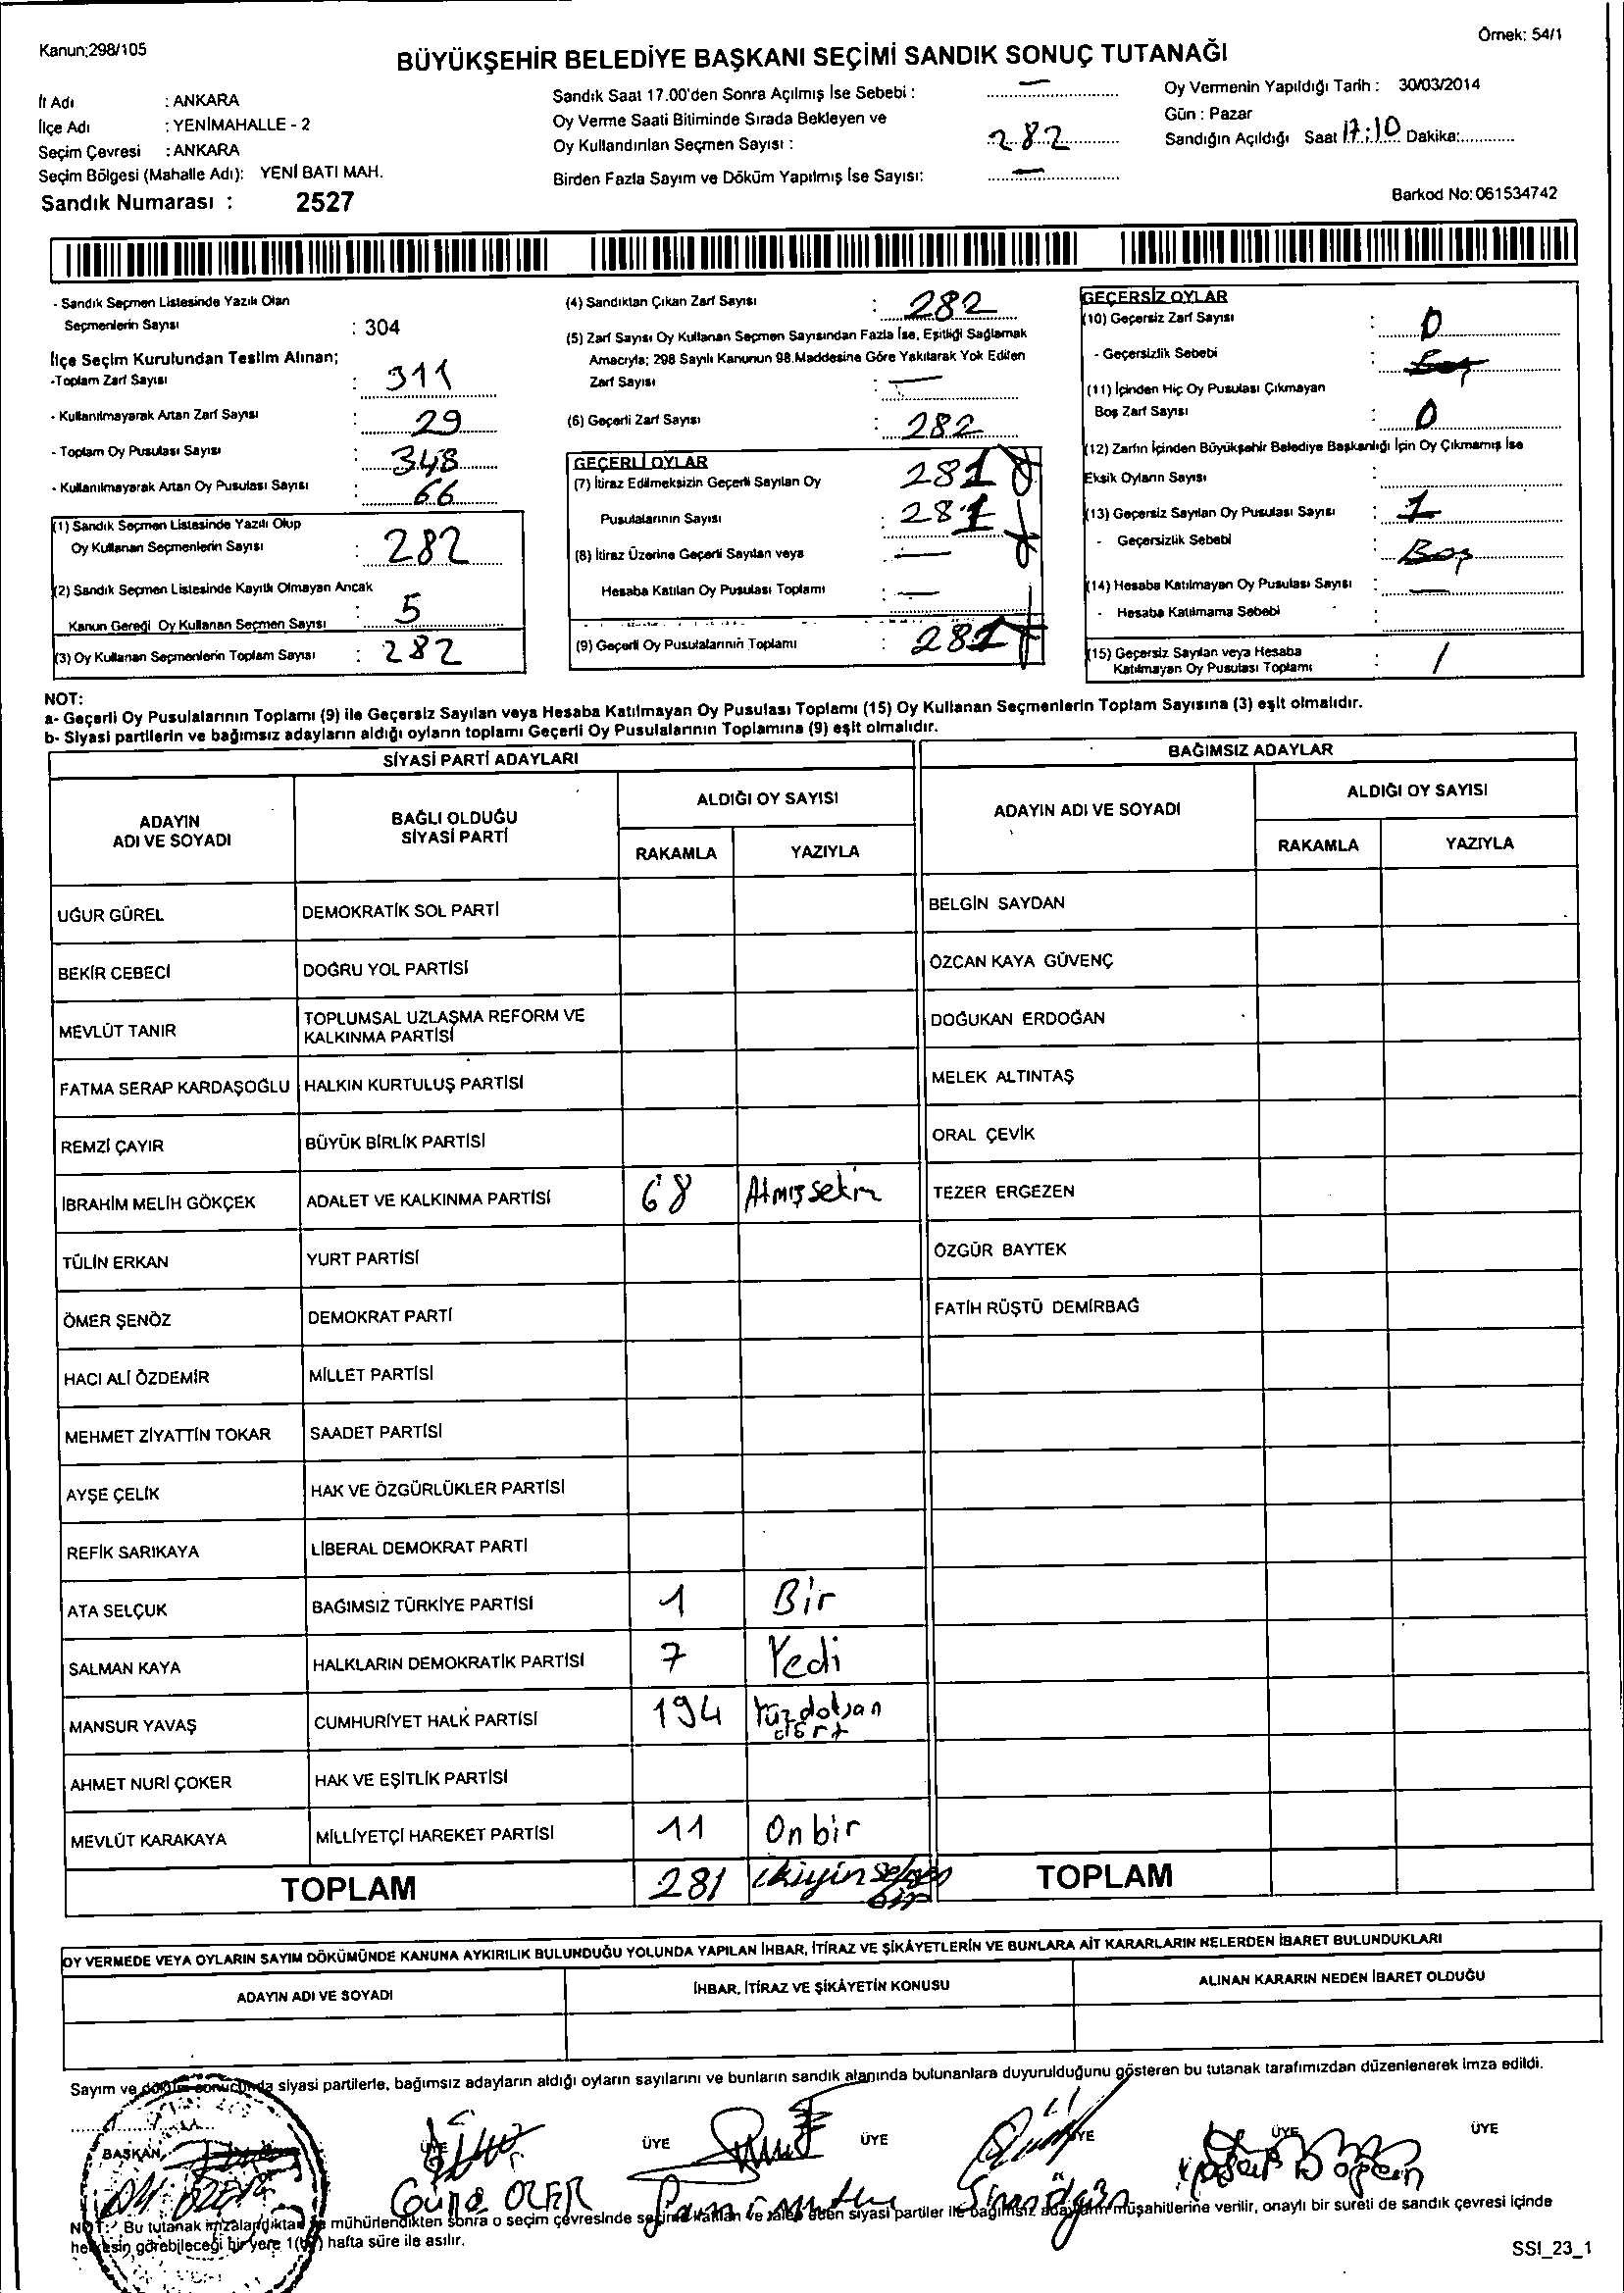 Kanun;298/105
Örnek: 54/1
BÜYÜKŞEHİR BELEDİYE BAŞKANI SEÇİMİ SANDIK SONUÇ TUTANAĞI
İl Adı : ANKARA
İlçe Adı : YENİMAHALLE - 2
Seçim Çevresi : ANKARA
Seçim Bölgesi (Mahalle Adı): YENİ BATI MAH.
Sandık Numarası : 2527
Sandık Saat 17.00'den Sonra Açılmış İse Sebebi : —
Oy Verme Saati Bitiminde Sırada Bekleyen ve
Oy Kullandırılan Seçmen Sayısı : 282
Birden Fazla Sayım ve Döküm Yapılmış İse Sayısı: —
Oy Vermenin Yapıldığı Tarih : 30/03/2014
Gün : Pazar
Sandığın Açıldığı Saat 17:10 Dakika:
Barkod No: 061534742
- Sandık Seçmen Listesinde Yazılı Olan
Seçmenlerin Sayısı : 304
İlçe Seçim Kurulundan Teslim Alınan;
-Toplam Zarf Sayısı : 311
- Kullanılmayarak Artan Zarf Sayısı : 29
- Toplam Oy Pusulası Sayısı : 348
- Kullanılmayarak Artan Oy Pusulası Sayısı : 66
(1) Sandık Seçmen Listesinde Yazılı Olup
Oy Kullanan Seçmenlerin Sayısı : 282
(2) Sandık Seçmen Listesinde Kayıtlı Olmayan Ancak
Kanun Gereği Oy Kullanan Seçmen Sayısı : 5
(3) Oy Kullanan Seçmenlerin Toplam Sayısı : 282
(4) Sandıktan Çıkan Zarf Sayısı : 282
(5) Zarf Sayısı Oy Kullanan Seçmen Sayısından Fazla İse, Eşitliği Sağlamak
Amacıyla; 298 Sayılı Kanunun 98.Maddesine Göre Yakılarak Yok Edilen
Zarf Sayısı : —
(6) Geçerli Zarf Sayısı : 282
GEÇERLİ OYLAR
(7) İtiraz Edilmeksizin Geçerli Sayılan Oy 281
Pusulalarının Sayısı : 281
(8) İtiraz Üzerine Geçerli Sayılan veya —
Hesaba Katılan Oy Pusulası Toplamı : —
(9) Geçerli Oy Pusulalarının Toplamı : 281
GEÇERSİZ OYLAR
(10) Geçersiz Zarf Sayısı : 0
- Geçersizlik Sebebi : Boş
(11) İçinden Hiç Oy Pusulası Çıkmayan
Boş Zarf Sayısı : 0
(12) Zarfın İçinden Büyükşehir Belediye Başkanlığı İçin Oy Çıkmamış İse
Eksik Oyların Sayısı :
(13) Geçersiz Sayılan Oy Pusulası Sayısı : 1
- Geçersizlik Sebebi : Boş
(14) Hesaba Katılmayan Oy Pusulası Sayısı : —
- Hesaba Katılmama Sebebi :
(15) Geçersiz Sayılan veya Hesaba
Katılmayan Oy Pusulası Toplamı : 1
NOT:
a- Geçerli Oy Pusulalarının Toplamı (9) ile Geçersiz Sayılan veya Hesaba Katılmayan Oy Pusulası Toplamı (15) Oy Kullanan Seçmenlerin Toplam Sayısına (3) eşit olmalıdır.
b- Siyasi partilerin ve bağımsız adayların aldığı oyların toplamı Geçerli Oy Pusulalarının Toplamına (9) eşit olmalıdır.
SİYASİ PARTİ ADAYLARI
BAĞIMSIZ ADAYLAR
ADAYIN
ADI VE SOYADI
BAĞLI OLDUĞU
SİYASİ PARTİ
ALDIĞI OY SAYISI
RAKAMLA YAZIYLA
ADAYIN ADI VE SOYADI
ALDIĞI OY SAYISI
RAKAMLA YAZIYLA
UĞUR GÜREL DEMOKRATİK SOL PARTİ BELGİN SAYDAN
BEKİR CEBECİ DOĞRU YOL PARTİSİ ÖZCAN KAYA GÜVENÇ
MEVLÜT TANIR TOPLUMSAL UZLAŞMA REFORM VE
KALKINMA PARTİSİ DOĞUKAN ERDOĞAN
FATMA SERAP KARDAŞOĞLU HALKIN KURTULUŞ PARTİSİ MELEK ALTINTAŞ
REMZİ ÇAYIR BÜYÜK BİRLİK PARTİSİ ORAL ÇEVİK
İBRAHİM MELİH GÖKÇEK ADALET VE KALKINMA PARTİSİ 68 Atmışsekin TEZER ERGEZEN
TÜLİN ERKAN YURT PARTİSİ ÖZGÜR BAYTEK
ÖMER ŞENÖZ DEMOKRAT PARTİ FATİH RÜŞTÜ DEMİRBAĞ
HACI ALİ ÖZDEMİR MİLLET PARTİSİ
MEHMET ZİYATTİN TOKAR SAADET PARTİSİ
AYŞE ÇELİK HAK VE ÖZGÜRLÜKLER PARTİSİ
REFİK SARIKAYA LİBERAL DEMOKRAT PARTİ
ATA SELÇUK BAĞIMSIZ TÜRKİYE PARTİSİ 1 Bir
SALMAN KAYA HALKLARIN DEMOKRATİK PARTİSİ 7 Yedi
MANSUR YAVAŞ CUMHURİYET HALK PARTİSİ 194 Yüzdoksan
dört
AHMET NURİ ÇOKER HAK VE EŞİTLİK PARTİSİ
MEVLÜT KARAKAYA MİLLİYETÇİ HAREKET PARTİSİ 11 Onbir
TOPLAM 281 TOPLAM
OY VERMEDE VEYA OYLARIN SAYIM DÖKÜMÜNDE KANUNA AYKIRILIK BULUNDUĞU YOLUNDA YAPILAN İHBAR, İTİRAZ VE ŞİKÂYETLERİN VE BUNLARA AİT KARARLARIN NELERDEN İBARET BULUNDUKLARI
ADAYIN ADI VE SOYADI İHBAR, İTİRAZ VE ŞİKÂYETİN KONUSU ALINAN KARARIN NEDEN İBARET OLDUĞU
Sayım ve döküm sonucunda siyasi partilerle, bağımsız adayların aldığı oyların sayılarını ve bunların sandık alanında bulunanlara duyurulduğunu gösteren bu tutanak tarafımızdan düzenlenerek imza edildi.
BAŞKAN ÜYE ÜYE ÜYE ÜYE ÜYE ÜYE
NOT: Bu tutanak imzalandıktan ve mühürlendikten sonra o seçim çevresinde seçime katılan ve talep eden siyasi partiler ile bağımsız adayların müşahitlerine verilir, onaylı bir sureti de sandık çevresi içinde
herkesin görebileceği bir yere 1(bir) hafta süre ile asılır.
SSI_23_1